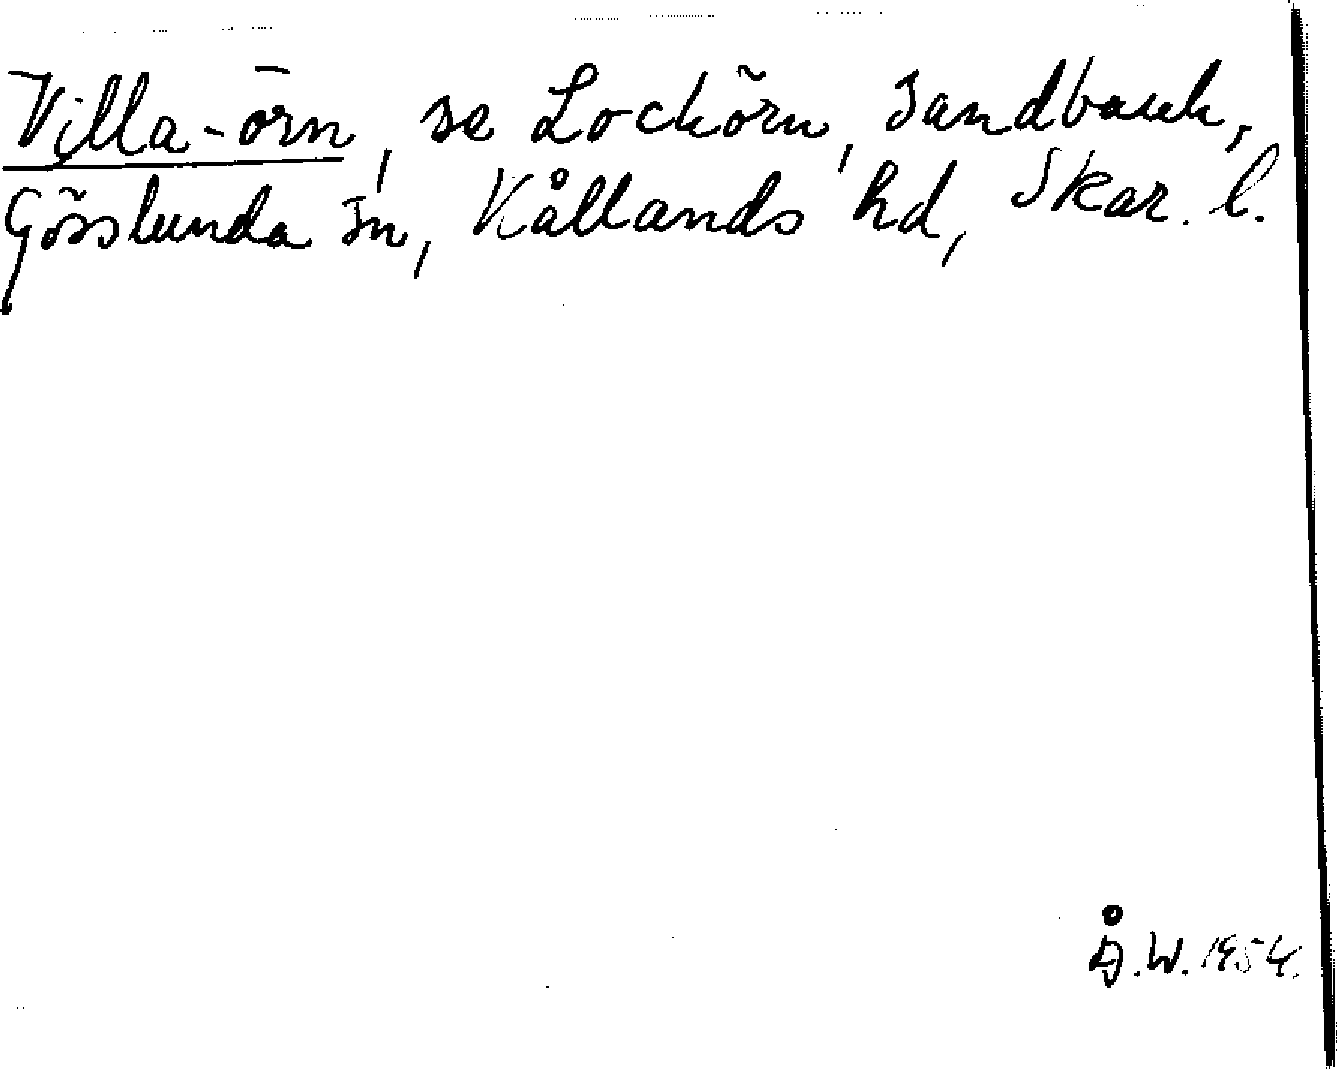 Villa-örn, se Lockörn, sandbank,
Gösslunda sn, Kållands hd, Skar. l.
Å.W. 1954.